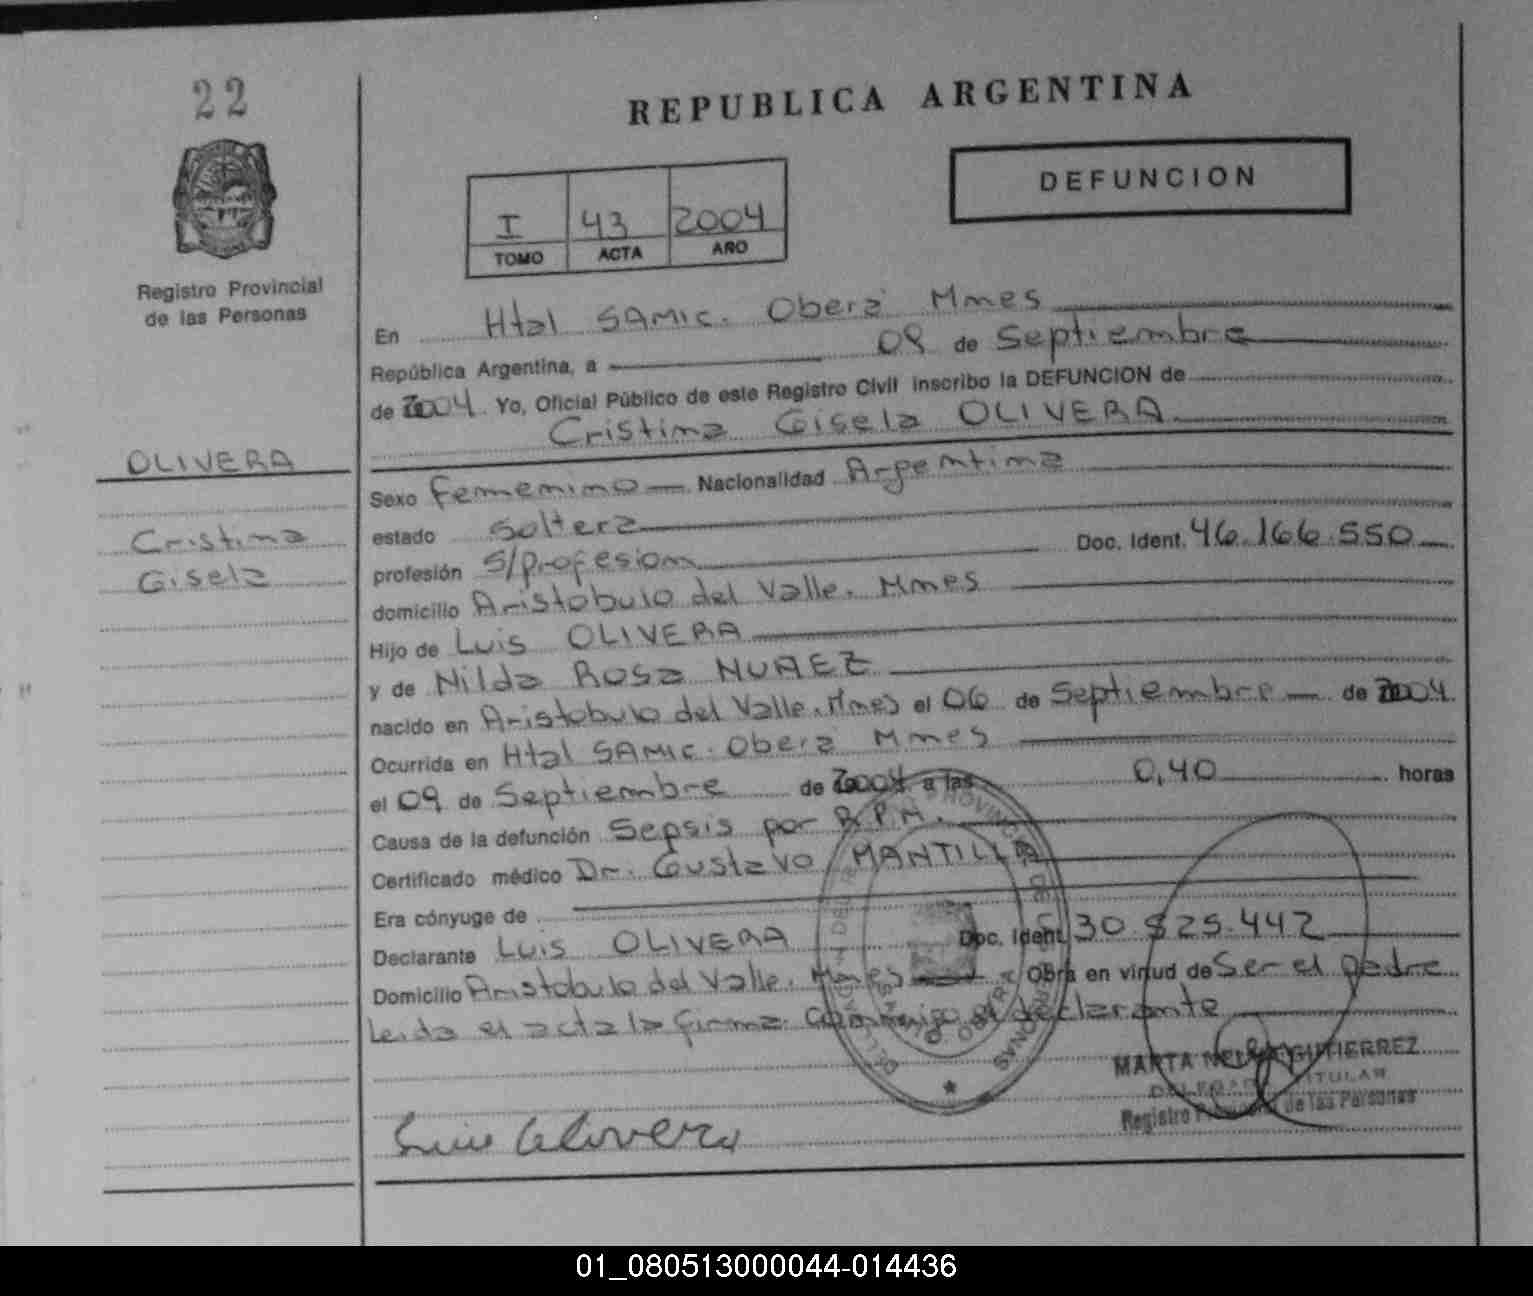 22
REPUBLICA ARGENTINA
DEFUNCION
I 43 2004
TOMO ACTA AÑO
Registro Provincial
de las Personas
En Htal SAMIC. Oberá Mnes
República Argentina, a 09 de Septiembre
de 2004 Yo, Oficial Público de este Registro Civil inscribo la DEFUNCION de
Cristina Gisela OLIVERA
OLIVERA
Cristina
Gisela
Sexo Femenino Nacionalidad Argentina
estado Soltera
profesión S/profesion Doc. Ident. 46.166.550
domicilio Aristobulo del Valle. Mnes
Hijo de Luis OLIVERA
y de Nilda Rosa NUÑEZ
nacido en Aristobulo del Valle. Mnes el 06 de Septiembre de 2004
Ocurrida en Htal SAMIC. Oberá Mnes
el 09 de Septiembre de 2004 a las 0,40 horas
Causa de la defunción Sepsis por R.P.M.
Certificado médico Dr. Gustavo MANTILLA
Era cónyuge de
Declarante Luis OLIVERA Doc. Ident. 30.825.442
Domicilio Aristobulo del Valle. Mnes Obra en virtud de Ser el padre
Leida el acta la firma conmigo el declarante
MARTA GUTIERREZ
TITULAR
Registro de las Personas
Luis Olivera
01_080513000044-014436